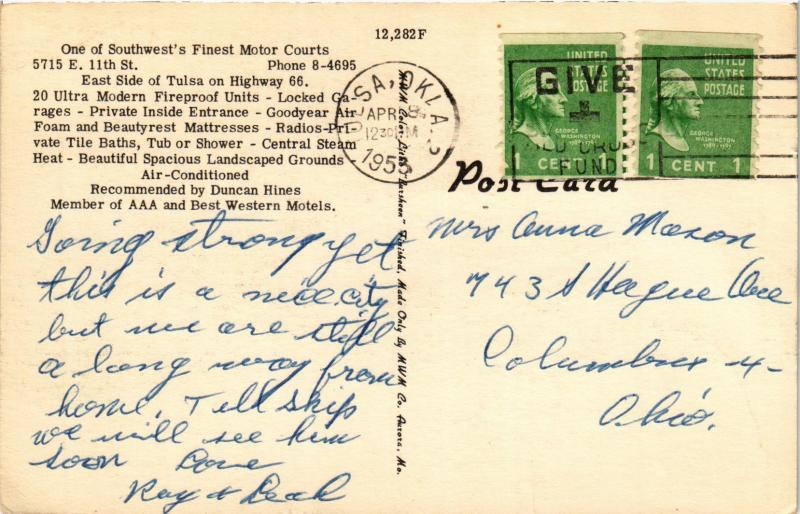 12,282F
One of Southwest's Finest Motor Courts
5715 E. 11th St. Phone 8-4695
East Side of Tulsa on Highway 66.
20 Ultra Modern Fireproof Units - Locked Ga-
rages - Private Inside Entrance - Goodyear Air
Foam and Beautyrest Mattresses - Radios-Pri-
vate Tile Baths, Tub or Shower - Central Steam
Heat - Beautiful Spacious Landscaped Grounds
Air-Conditioned
Recommended by Duncan Hines
Member of AAA and Best Western Motels.
Going strong yet
this is a nice city
but we are still
a long way from
home. Tell Skip
we will see him
soon Love
Ray & Leah
Finished, Made Only By MWM Co. Aurora, Mo.
TULSA, OKLA.
APR 8
1230 PM
GIVE
RED CROSS
FUND
UNITED
STATES
POSTAGE
GEORGE
WASHINGTON
1789-1797
1 CENT
UNITED
STATES
POSTAGE
GEORGE
WASHINGTON
1789-1797
1 CENT 1
Post Card
Mrs Anna Mason
743 S Hague Ave
Columbus 4-
Ohio.